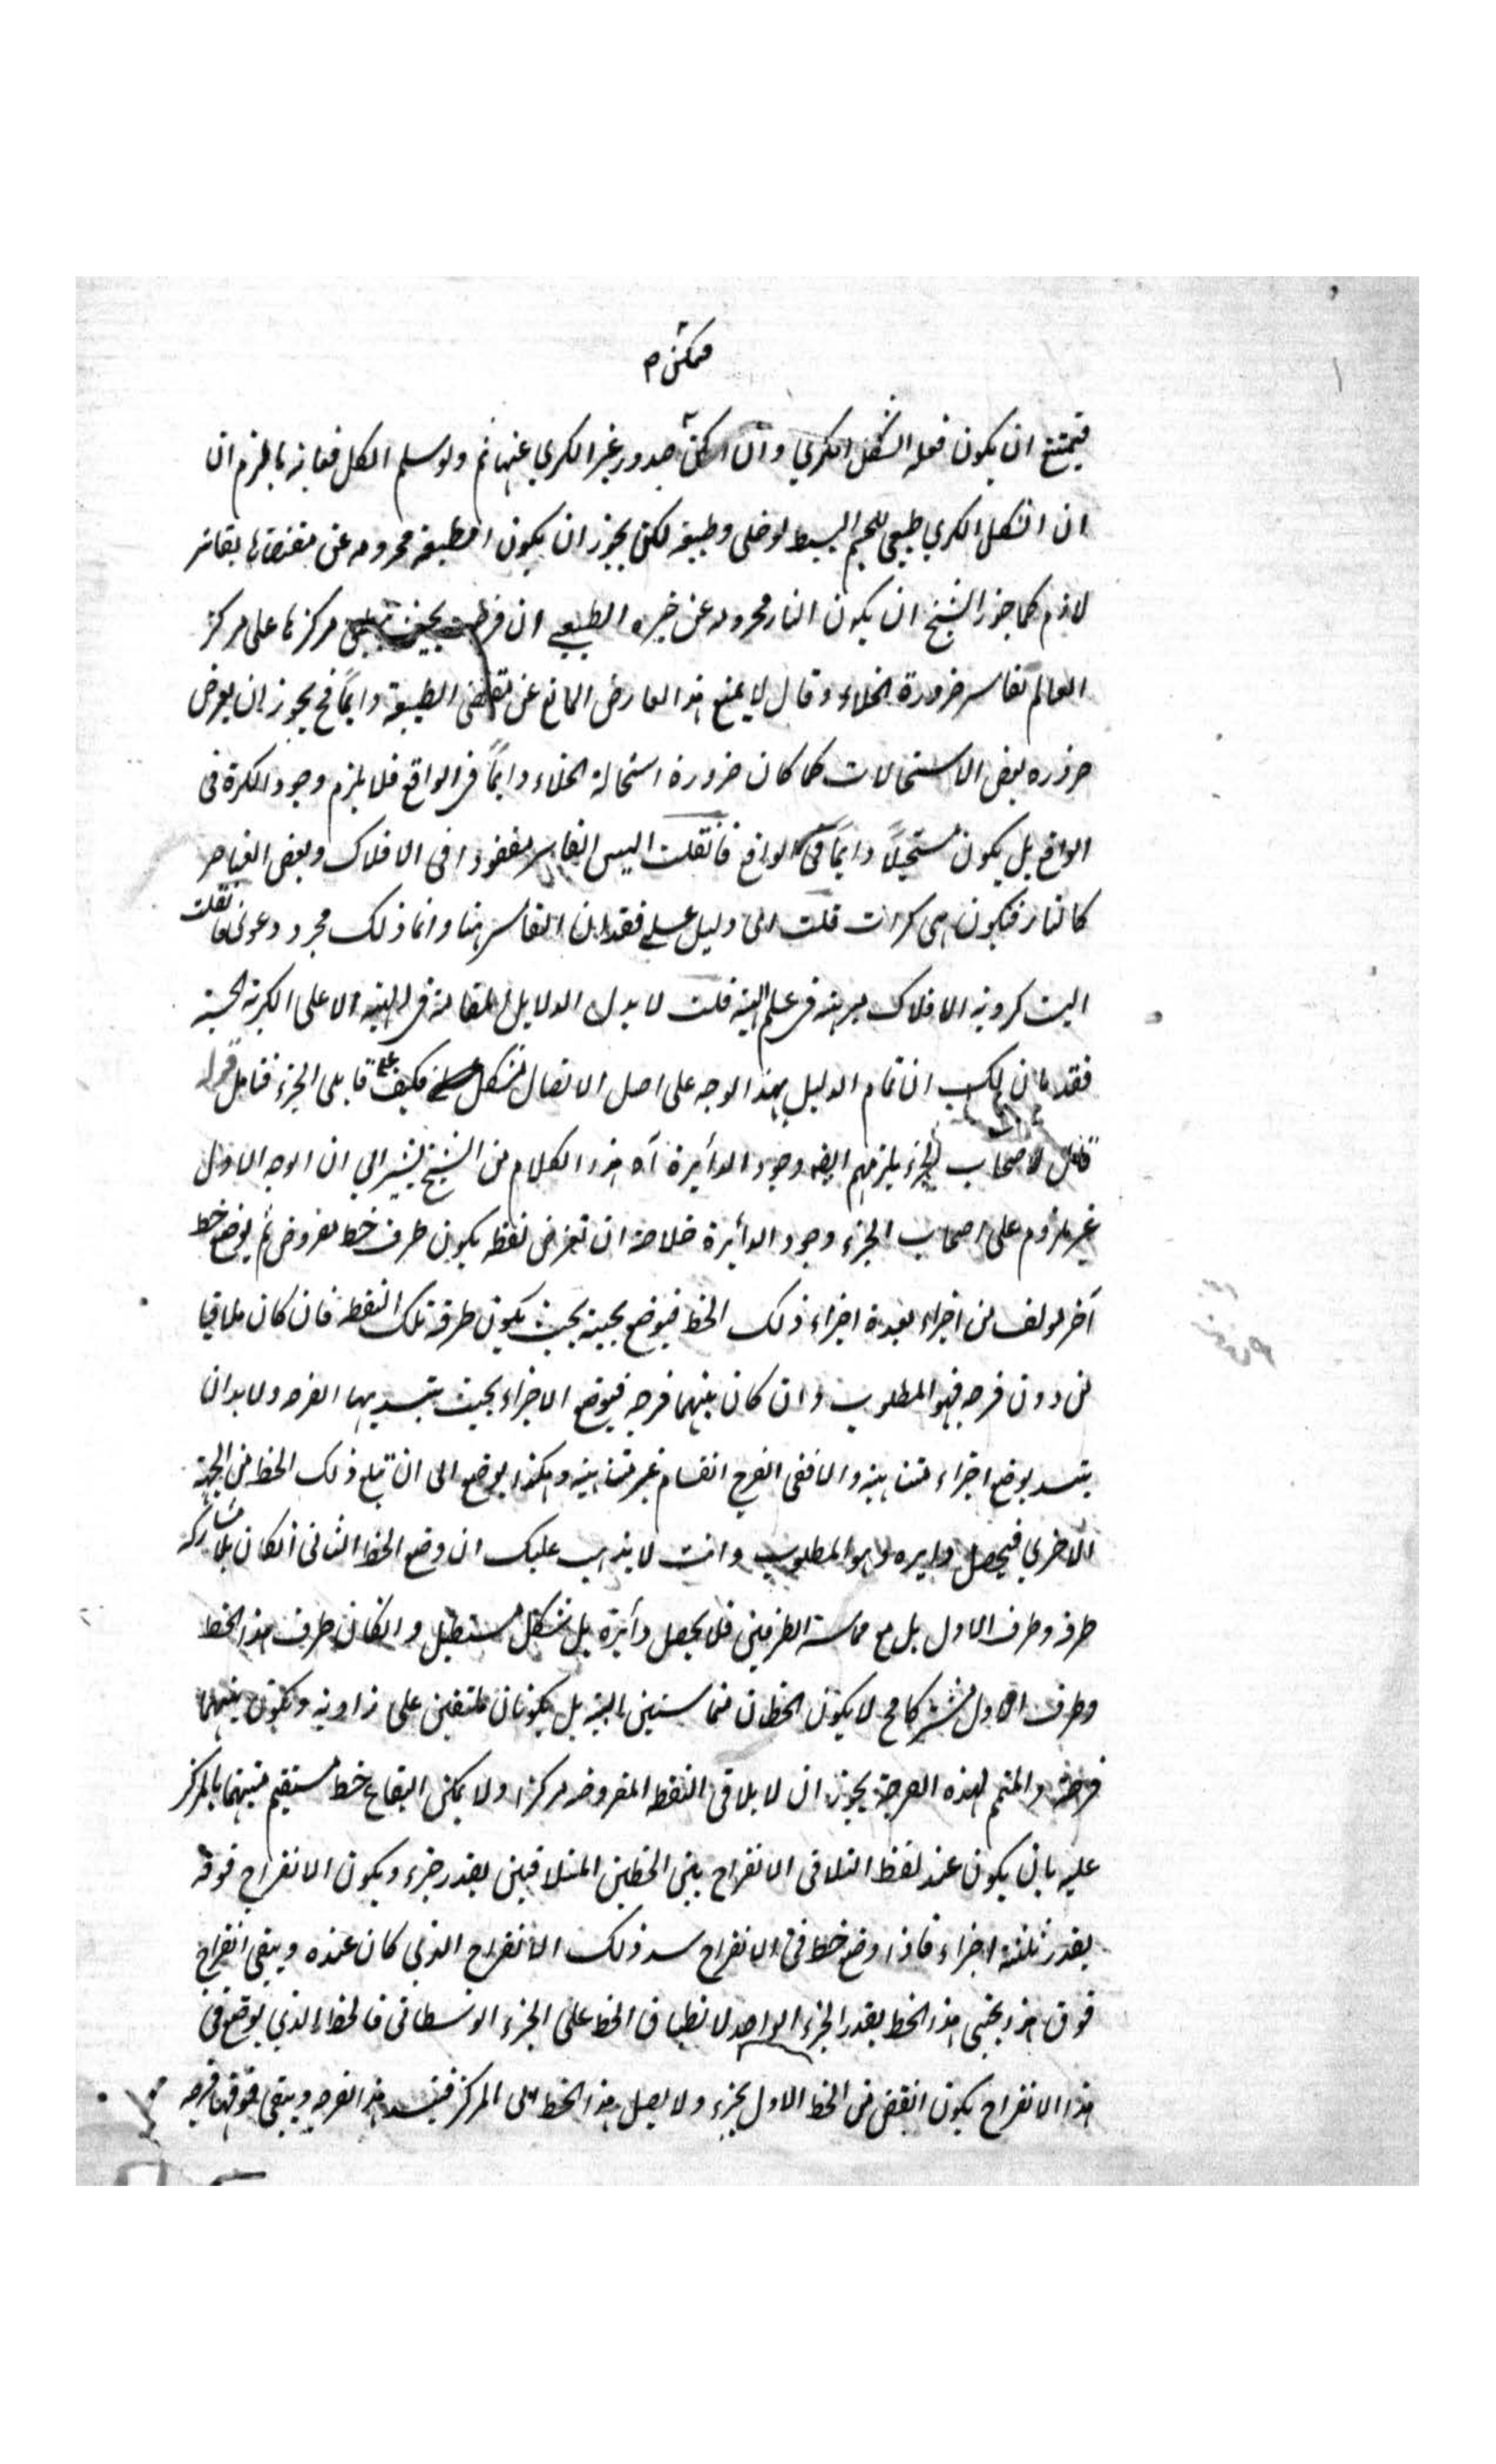 ممكن م
فيمتنع ان يكون فعله الشكل الكري وان امكن صدور غير الكري عنها ثم ولو سلم الكل فغاية ما يلزم ان
ان الشكل الكري طبيعي للجسم البسيط لو خلي وطبيعته لكن يجوز ان يكون الطبيعة محرومة عن مقتضاها بقاسر
لازم كما جوز الشيخ ان يكون النار محرومة عن حيزه الطبيعي ان فرضت بحيث مركزها على مركز
العالم لقاسر ضرورة الخلاء وقال لا يمنع هذا العارض المانع عن مقتضى الطبيعة دايماً فح يجوز ان يعرض
ضرورة بعض الاستحالات كما كان ضرورة استحالة الخلاء دايماً في الواقع فلا يلزم وجود الكرة في
الواقع بل يكون مستحيلاً دايماً في الواقع فانقلت اليس القاسر مفقودا في الافلاك وبعض العناصر
كالنار فيكون هي كرات قلت اي دليل على فقدان القاسر هنا وانما ذلك مجرد دعوى فانقلت
اليست كروية الافلاك مبرهنة في علم الهيئة قلت لا يدل الدلايل المقامة في الهيئة الا على الكرية الحسية
فقد بان لك ان تمام الدليل بهذا الوجه على اصل الاتصال مشكل فكيف على قايلي الجزء فتامل قوله
لاصحاب الجزء يلزمهم ايضا وجود الدائرة اه هذا الكلام من الشيخ يشير الى ان الوجه الاول
غير ملزوم على اصحاب الجزء وجود الدائرة خلاصة ان تفرض نقطة يكون طرف خط مفروض ثم يوضع خط
آخر مولف من اجزاء بعدة اجزاء ذلك الخط فيوضع بجنبه بحيث يكون طرفه تلك النقطة فان كان ملاقيا
من دون فرجة فهو المطلوب وان كان بينهما فرجة فيوضع الاجزاء بحيث ينسد بها الفرجة ولا بد ان
ينسد بوضع اجزاء متناهية والا ففي الفرج انقسام غير متناهية وهكذا يوضع الى ان تبلغ ذلك الخط من الجهة
الاخرى فيحصل دايرة وهو المطلوب وانت لا يذهب عليك ان وضع الخط الثاني انكان بلا مشاركة
طرفه وطرف الاول بل مع مماسة الطرفين فلا يحصل دائرة بل شكل مستطيل وانكان طرف هذا الخط
وطرف الاول مشتركا فح لا يكون الخطان متماسين البتة بل يكونان ملتقين على زاوية وتكون بينهما
فرجة والمتمم لهذه الفرجة يجوز ان لا يلاقي النقطة المفروضة مركزا ولا يمكن ايقاع خط مستقيم منتهيا بالمركز
عليه بان يكون عند نقطة التلاقي الانفراج بين الخطين المتلاقيين بقدر جزء ويكون الانفراج فوقه
بقدر ثلثة اجزاء فاذا وضع خط في الانفراج سد ذلك الانفراج الذي كان عنده ويبقى انفراج
فوق هذا بجنبي هذا الخط بقدر الجزء الواحد لانطباق الخط على الجزء الوسطاني فالخط الذي يوضع في
هذا الانفراج يكون انقص من الخط الاول بجزء ولا يصل هذا الخط الى المركز فينسد هذا الفرجة ويبقى فوقها فرجة